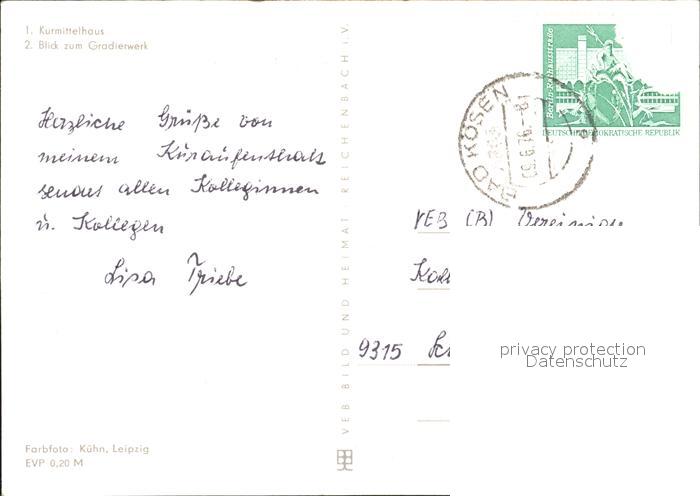 1. Kurmittelhaus
2. Blick zum Gradierwerk
Herzliche Grüße von
meinem Kuraufenthalt
sendet allen Kolleginnen
u. Kollegen
Lisa Triebe
Farbfoto: Kühn, Leipzig
EVP 0,20 M
VEB BILD UND HEIMAT · REICHENBACH i.V.
Berlin·Rathausstraße
DEUTSCHE DEMOKRATISCHE REPUBLIK
BAD KÖSEN
VEB (B)
9315
privacy protection
Datenschutz